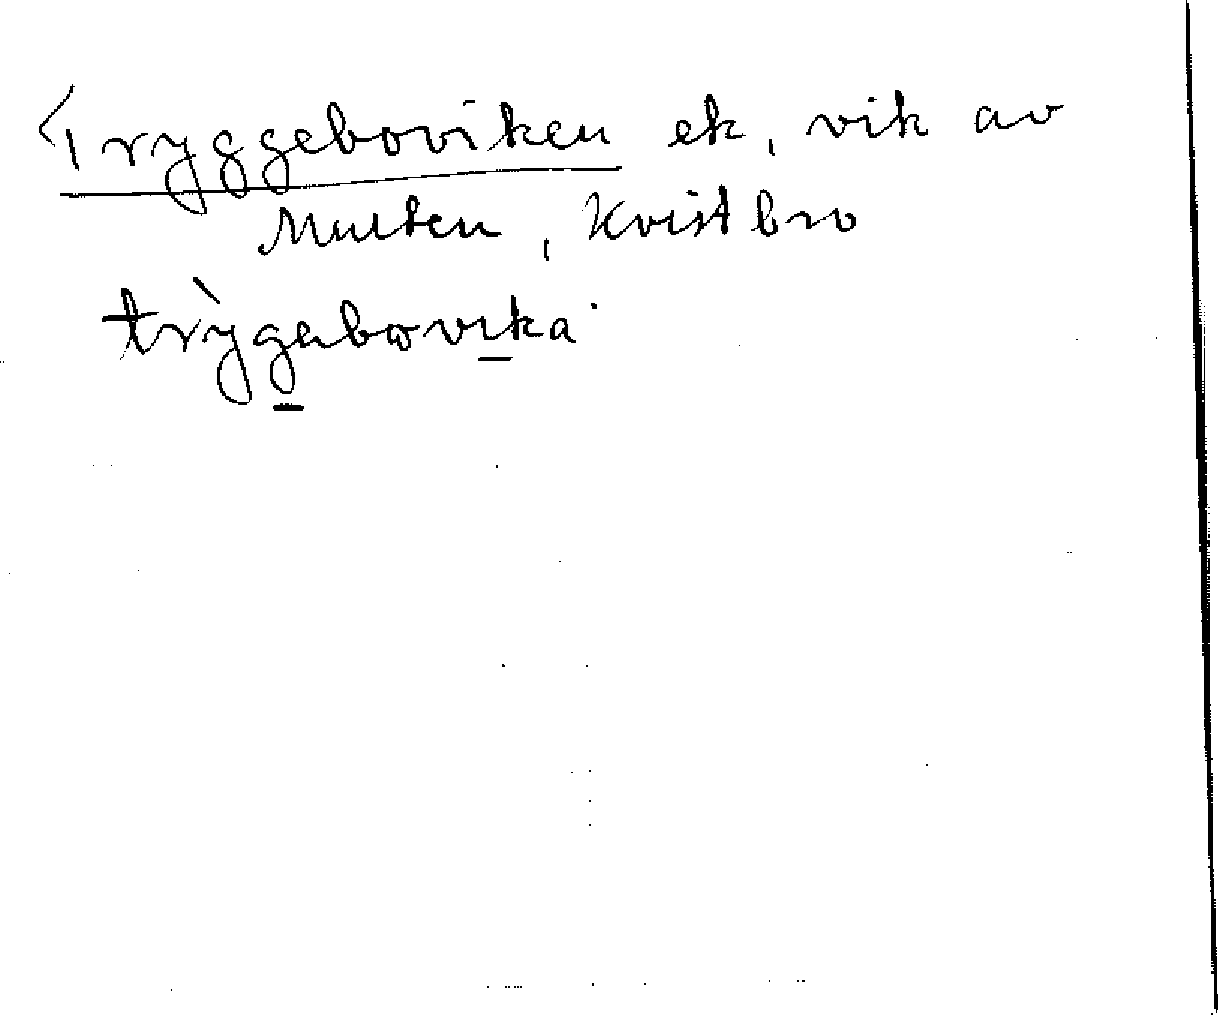 Tryggeboviken ek, vik av
Multen, Kvistbro
trỳgabovika